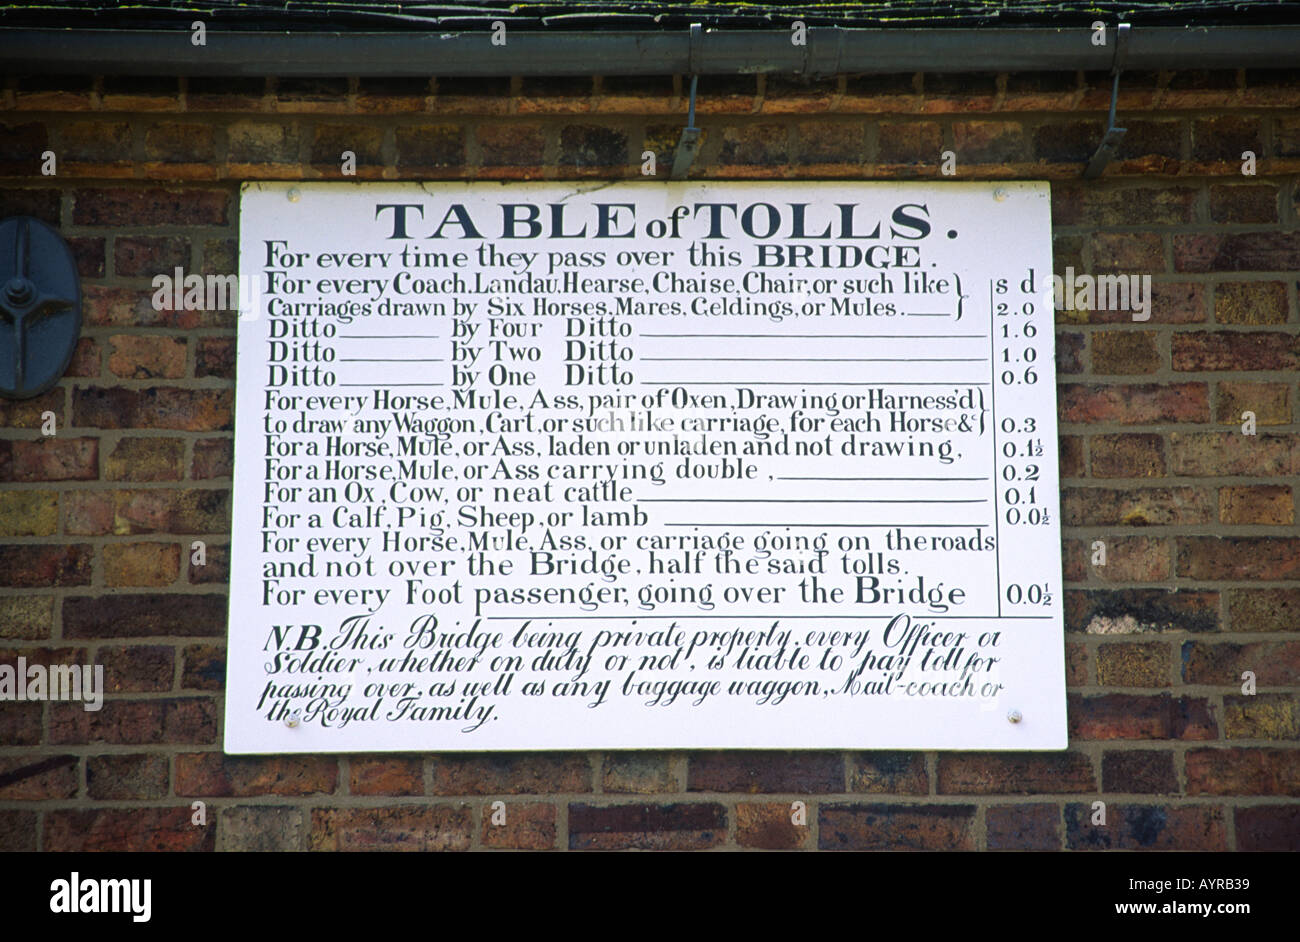 TABLE of TOLLS.
For every time they pass over this BRIDGE.
For every Coach, Landau, Hearse, Chaise, Chair, or such like } s d
Carriages drawn by Six Horses, Mares, Geldings, or Mules. 2.0
Ditto by Four Ditto 1.6
Ditto by Two Ditto 1.0
Ditto by One Ditto 0.6
For every Horse, Mule, Ass, pair of Oxen, Drawing or Harness'd }
to draw any Waggon, Cart, or such like carriage, for each Horse &c 0.3
For a Horse, Mule, or Ass, laden or unladen and not drawing, 0.1½
For a Horse, Mule, or Ass carrying double, 0.2
For an Ox, Cow, or neat cattle 0.1
For a Calf, Pig, Sheep, or lamb 0.0½
For every Horse, Mule, Ass, or carriage going on the roads
and not over the Bridge, half the said tolls.
For every Foot passenger, going over the Bridge 0.0½
N.B. This Bridge being private property, every Officer or
Soldier, whether on duty or not, is liable to pay toll for
passing over, as well as any baggage waggon, Mail-coach or
the Royal Family.
alamy
Image ID: AYRB39
www.alamy.com